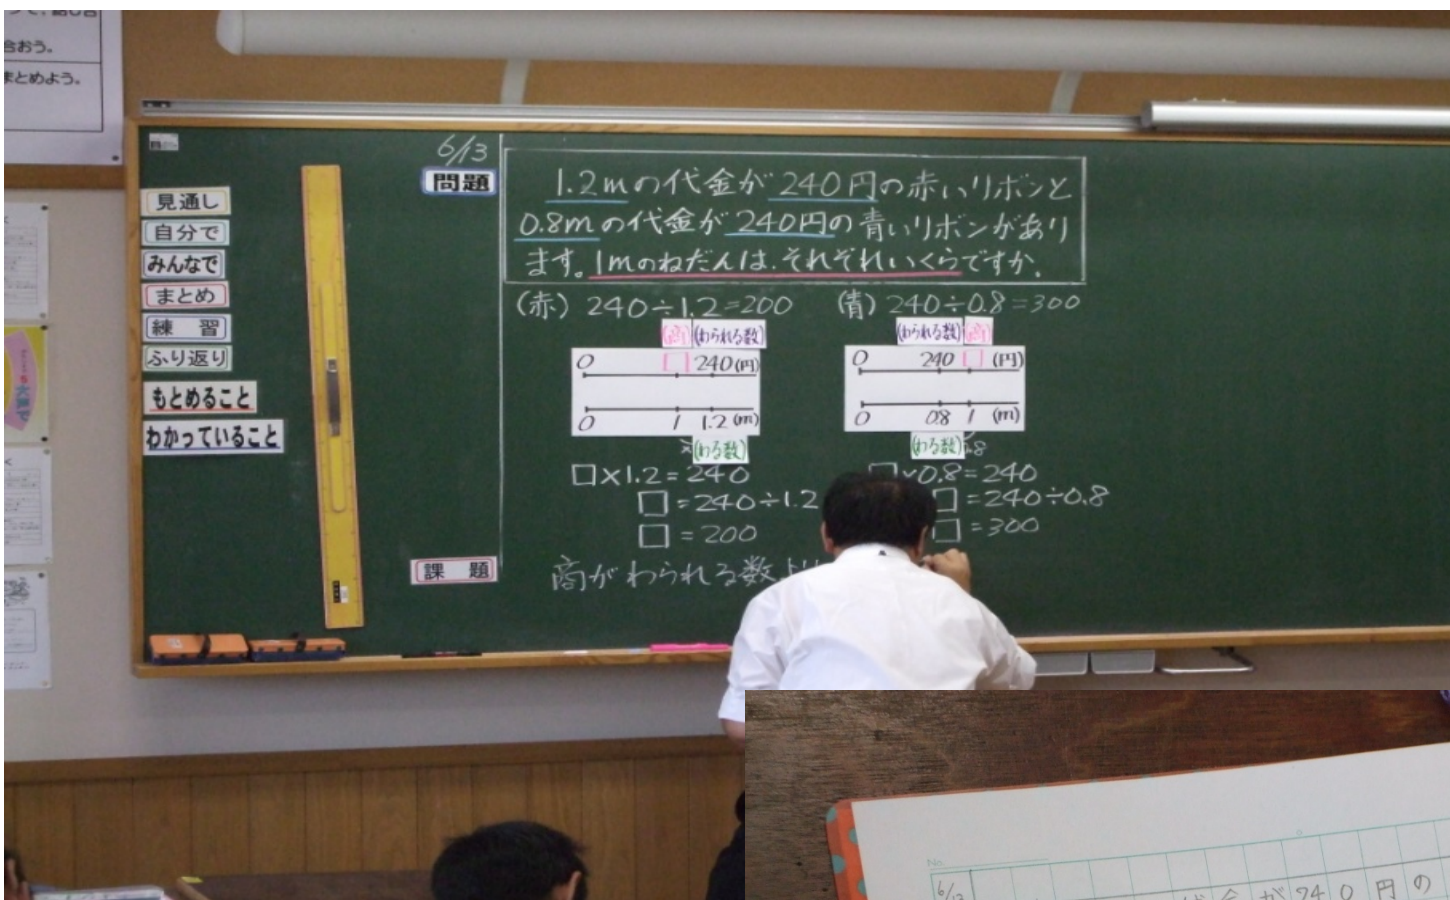 合おう。
まとめよう。
6/13
問題
見通し
自分で
みんなで
まとめ
練 習
ふり返り
もとめること
わかっていること
1.2mの代金が240円の赤いリボンと
0.8mの代金が240円の青いリボンがあり
ます。1mのねだんは、それぞれいくらですか。
(赤) 240÷1.2=200
(商) (わられる数)
0 □ 240(円)
0 1 1.2 (m)
(わる数)
□×1.2=240
□=240÷1.2
□=200
(青) 240÷0.8=300
(わられる数) (商)
0 240 □ (円)
0 0.8 1 (m)
(わる数)
□×0.8=240
□=240÷0.8
□=300
課 題
商がわられる数より
No.
6/13
代金が240円の